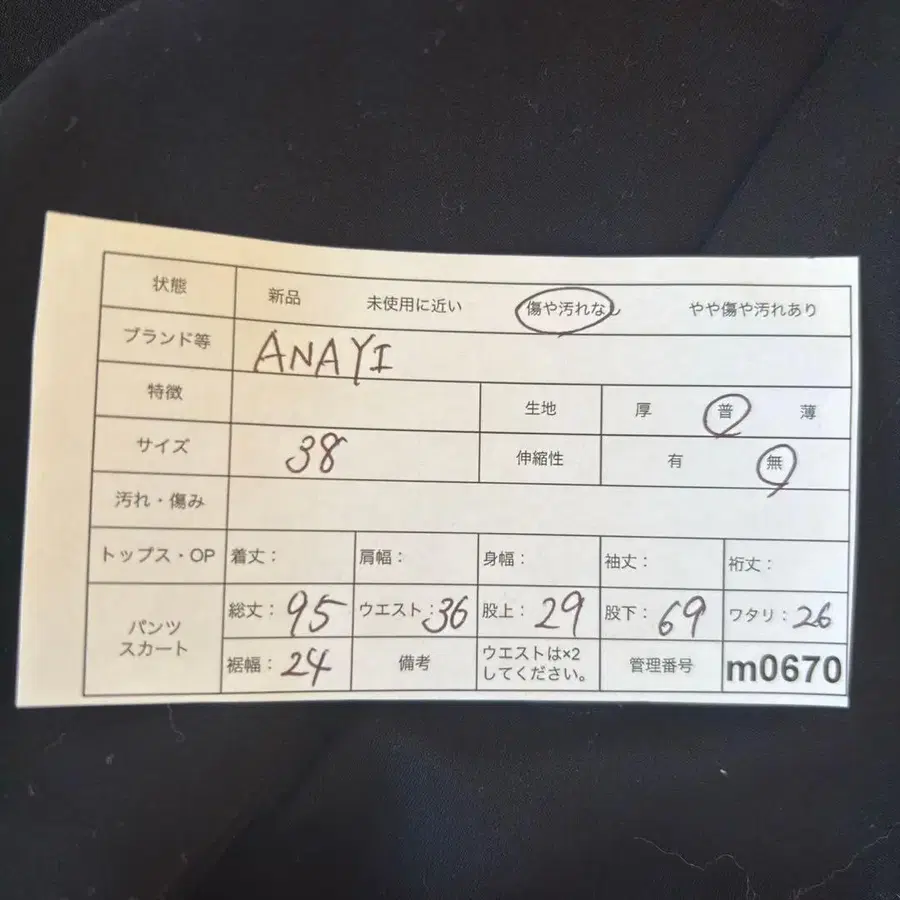 状態 新品 未使用に近い 傷や汚れなし やや傷や汚れあり
ブランド等 ANAYI
特徴 生地 厚 普 薄
サイズ 38 伸縮性 有 無
汚れ・傷み
トップス・OP 着丈： 肩幅： 身幅： 袖丈： 裄丈：
パンツ
スカート
総丈：95 ウエスト：36 股上：29 股下：69 ワタリ：26
裾幅：24 備考 ウエストは×2
してください。 管理番号 m0670